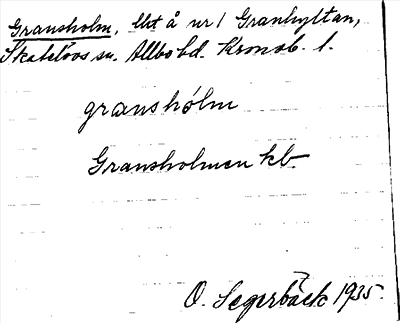 Gransholm, lht å nr 1 Granhyltan,
Skatelövs sn. Allbo hd. Kronob. l.
granshólm
Gransholmen kb
O. Segerbäck 1935.